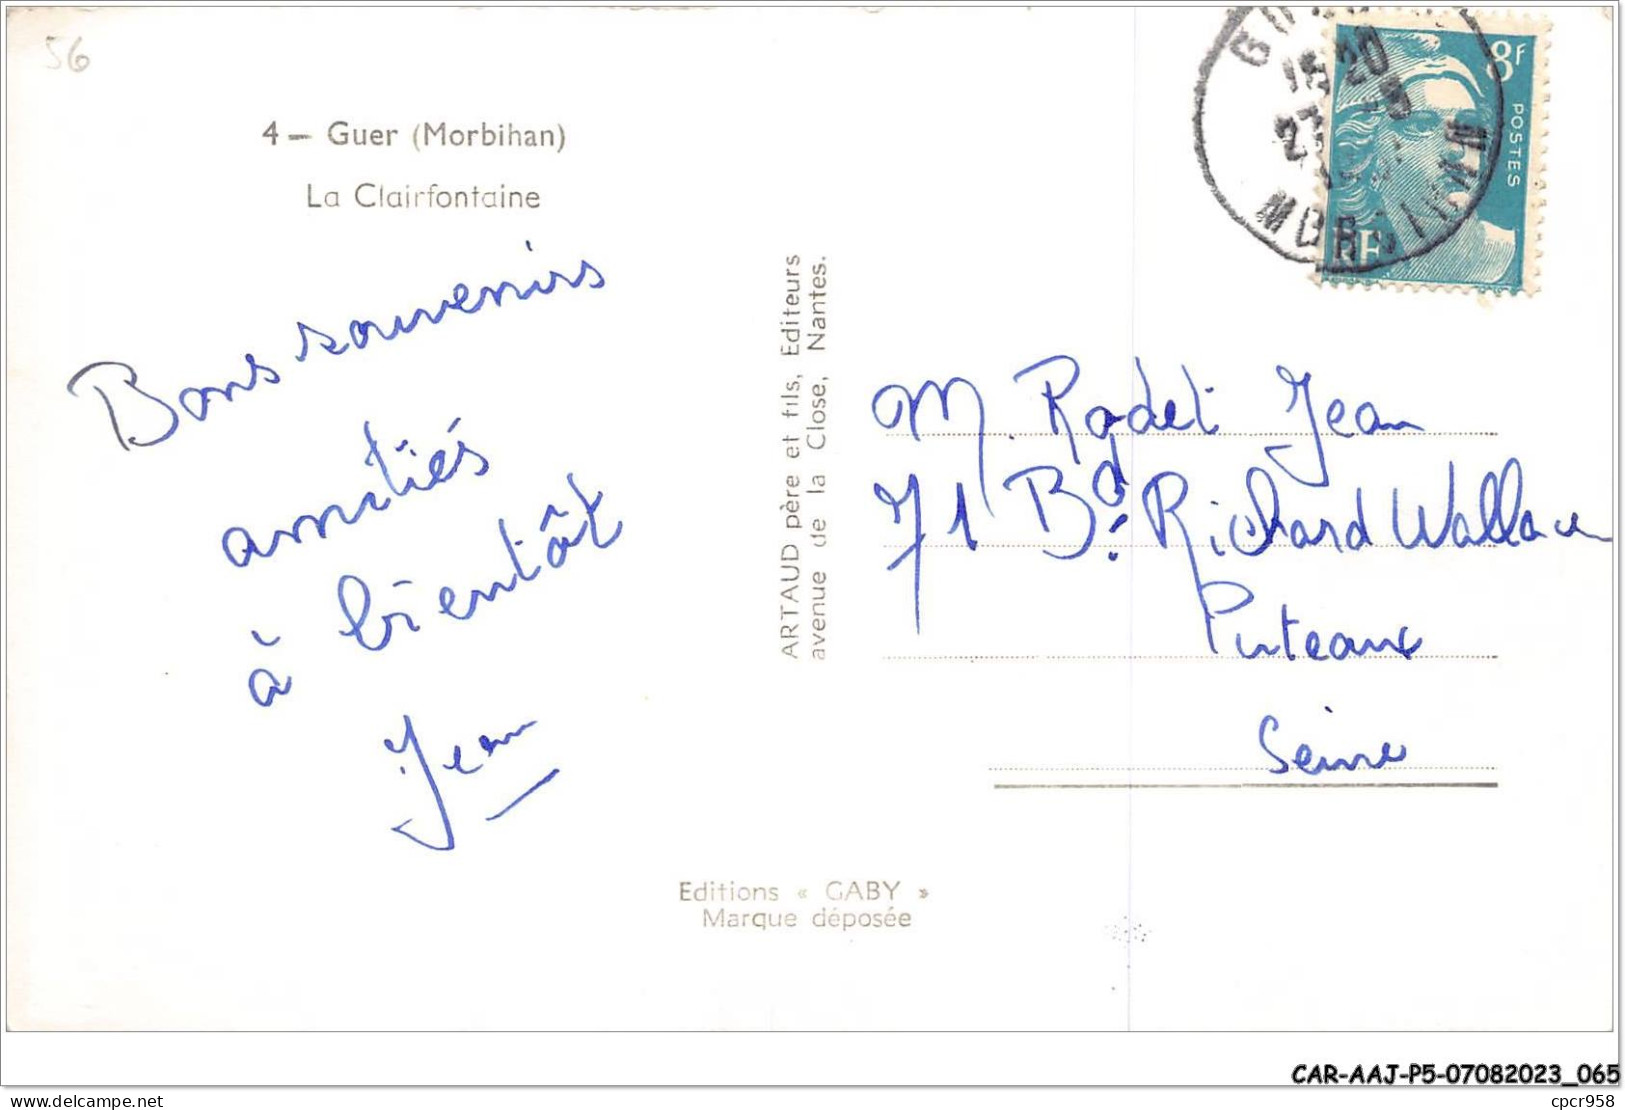 56
4 — Guer (Morbihan)
La Clairfontaine
Bons souvenirs
amitiés
à bientôt
Jean
ARTAUD père et fils, Editeurs
avenue de la Close, Nantes.
Editions « GABY »
Marque déposée
8F
POSTES
RF
GUER
MORBIHAN
M. Rodet Jean
71 Bd. Richard Wallace
Puteaux
Seine
CAR-AAJ-P5-07082023_065
cpcr958